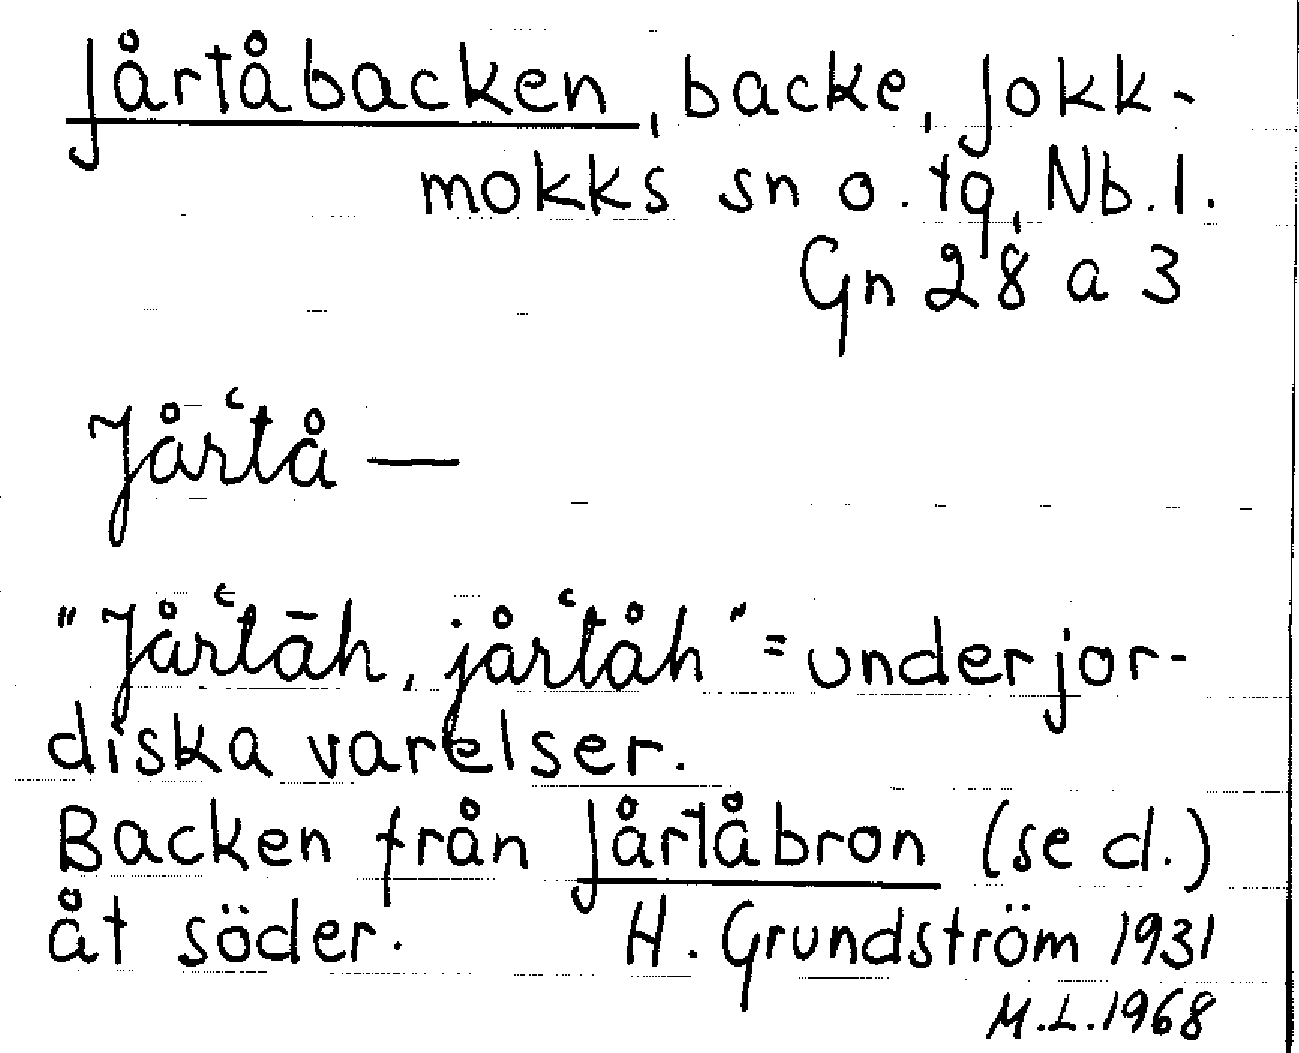 Jårtåbacken, backe, Jokk-
mokks sn o. tg, Nb. l.
Gn 28 a 3
Jårʿtå —
"Jårʿtāh, jårʿtåh" = underjor-
diska varelser.
Backen från Jårtåbron (se d.)
åt söder. H. Grundström 1931
M.L. 1968